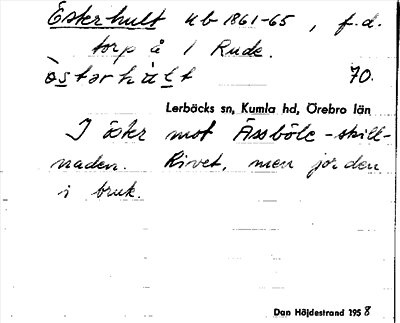 Österhult hb 1861-65, f.d.
torp å 1 Rude.
östərhùlt 70.
Lerbäcks sn, Kumla hd, Örebro län
I öster mot Åsböle-skill-
naden. Rivet, men jorden
i bruk.
Dan Höjdestrand 1958